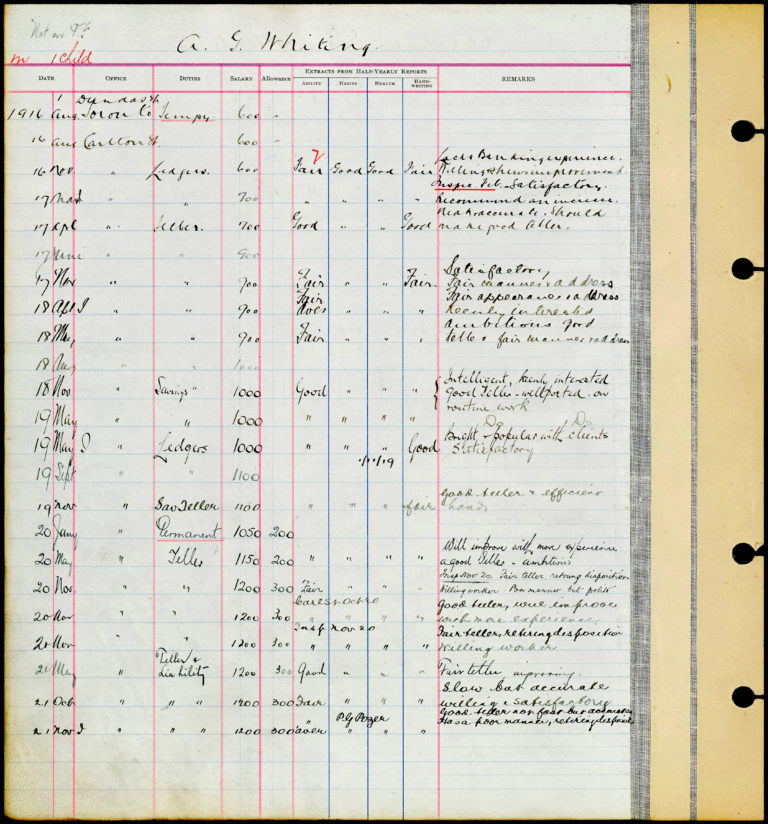 Not on
m 1 child
A. G. Whiting.
DATE OFFICE DUTIES SALARY Allowance EXTRACTS FROM HALF-YEARLY REPORTS REMARKS
ABILITY HABITS HEALTH HAND-WRITING
Dundas St
1916 Aug 1 Toronto Tempy 600 -
16 Aug Carlton St. 600 -
Lacks Banking experience.
16 Nov " Ledgers. 600 Fair Good Good Fair Willing & shews improvement
Satisfactory.
17 " 700 " " " " Recommend an increase.
Neat & accurate. Should
17 Apl " Teller. 700 Good " " Good make good teller.
17 June " " 900
Satisfactory
17 Nov " " 900 Fair " " Fair. Fair manner & address
Fair Fair appearance & address
18 Apl I " " 900 aver " " " Keenly interested
ambitious good
18 May " " 900 Fair " " " teller fair manner & address
18 Aug " " 1000
Intelligent, keenly interested
18 Nov " Savings " 1000 Good " " " Good Teller. well posted on
routine work
19 May " " 1000 " " " " Do Do
Bright & popular with clients
19 May I " Ledgers 1000 " " " Good Satisfactory
1/11/19
19 Sept " " 1100
Good teller & efficient
19 Nov " Sav Teller 1100 " " " fair
20 " Permanent 1050 200
Will improve with more experience
20 May " Teller 1150 200 " " " " a good Teller - ambitious
Insp Nov 20. Fair teller, retiring disposition
20 Nov. " " 1200 300 Fair " " " Willing worker Poor manner but polite
Good teller, will improve
20 Nov " " 1200 300 " " " " with more experience.
Insp Nov 20 Fair teller, retiring disposition
20 Nov " " 1200 300 " " " " Willing worker
Teller &
21 May " Liability 1200 300 Good " " " Fair teller improving.
Slow but accurate
21 Oct " " " 1200 300 Fair " " " willing & satisfactory
Good teller not fast but accurate
21 Nov I " " " 1200 300 aver " " " Has a poor manner, retiring disposition